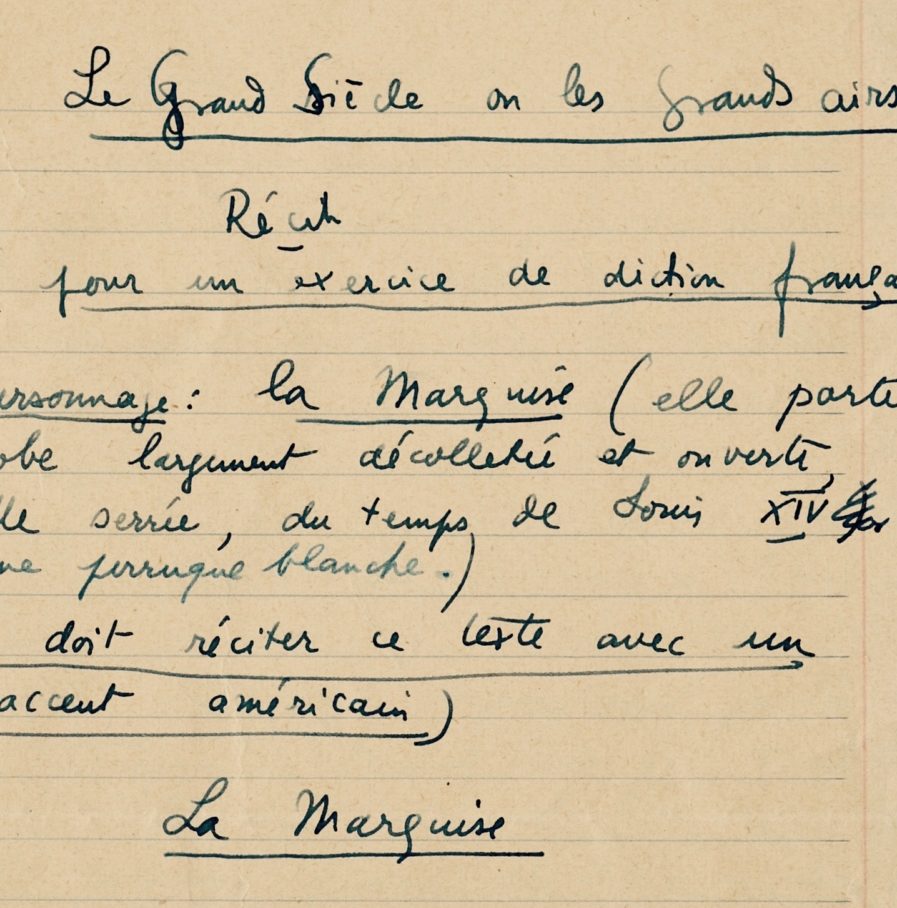 Le Grand Siècle ou les grands airs
Récit
pour un exercice de diction frança
ersonnage : la Marquise (elle porte
obe largement décolletée et ouverte,
lle serrée, du temps de Louis XIV
ne perruque blanche.)
doit réciter ce texte avec un
accent américain)
La Marquise